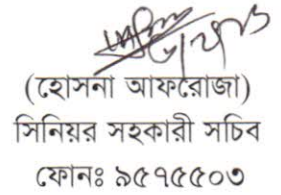 (হোসনা আফরোজা)
সিনিয়র সহকারী সচিব
ফোনঃ ৯৫৭৫৫০৩